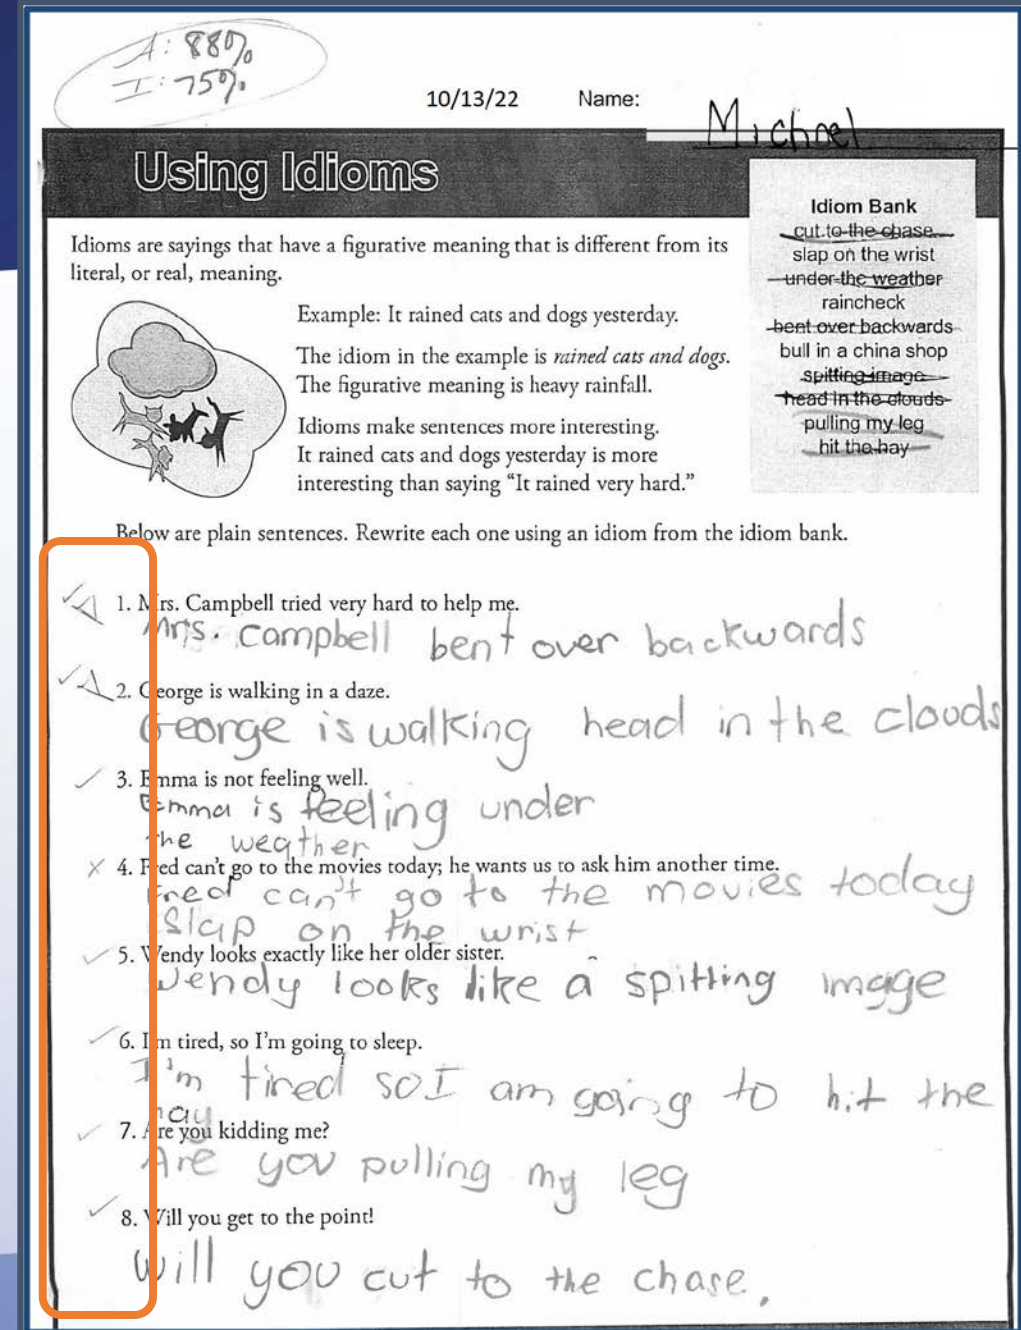 A: 88%
I: 75%
10/13/22 Name: Michael
Using Idioms
Idiom Bank
cut to the chase
slap on the wrist
under the weather
raincheck
bent over backwards
bull in a china shop
spitting image
head in the clouds
pulling my leg
hit the hay
Idioms are sayings that have a figurative meaning that is different from its
literal, or real, meaning.
Example: It rained cats and dogs yesterday.
The idiom in the example is rained cats and dogs.
The figurative meaning is heavy rainfall.
Idioms make sentences more interesting.
It rained cats and dogs yesterday is more
interesting than saying “It rained very hard.”
Below are plain sentences. Rewrite each one using an idiom from the idiom bank.
✓ A 1. Mrs. Campbell tried very hard to help me.
Mrs. Campbell bent over backwards
✓ A 2. George is walking in a daze.
George is walking head in the clouds
✓ 3. Emma is not feeling well.
Emma is feeling under
the weather
X 4. Fred can't go to the movies today; he wants us to ask him another time.
Fred can't go to the movies today
Slap on the wrist
✓ 5. Wendy looks exactly like her older sister.
Wendy looks like a spitting image
✓ 6. I'm tired, so I'm going to sleep.
I'm tired so I am going to hit the
hay
✓ 7. Are you kidding me?
Are you pulling my leg
✓ 8. Will you get to the point!
Will you cut to the chase.